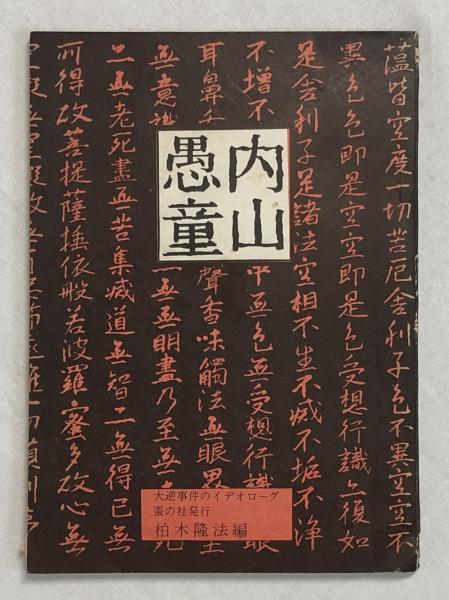 内山
愚童
蘊皆空度一切苦厄舎利子色不異空空不
異色色即是空空即是色受想行識亦復如
是舎利子是諸法空相不生不滅不垢不浄
不増不
中無色無受想行識無眼
耳鼻舌
聲香味觸法無眼界
無意識
無無明盡乃至無老死
亦無老死盡無苦集滅道無智亦無得已無
所得故菩提薩埵依般若波羅蜜多故心無
大逆事件のイデオローグ
蚕の社発行
柏木隆法編